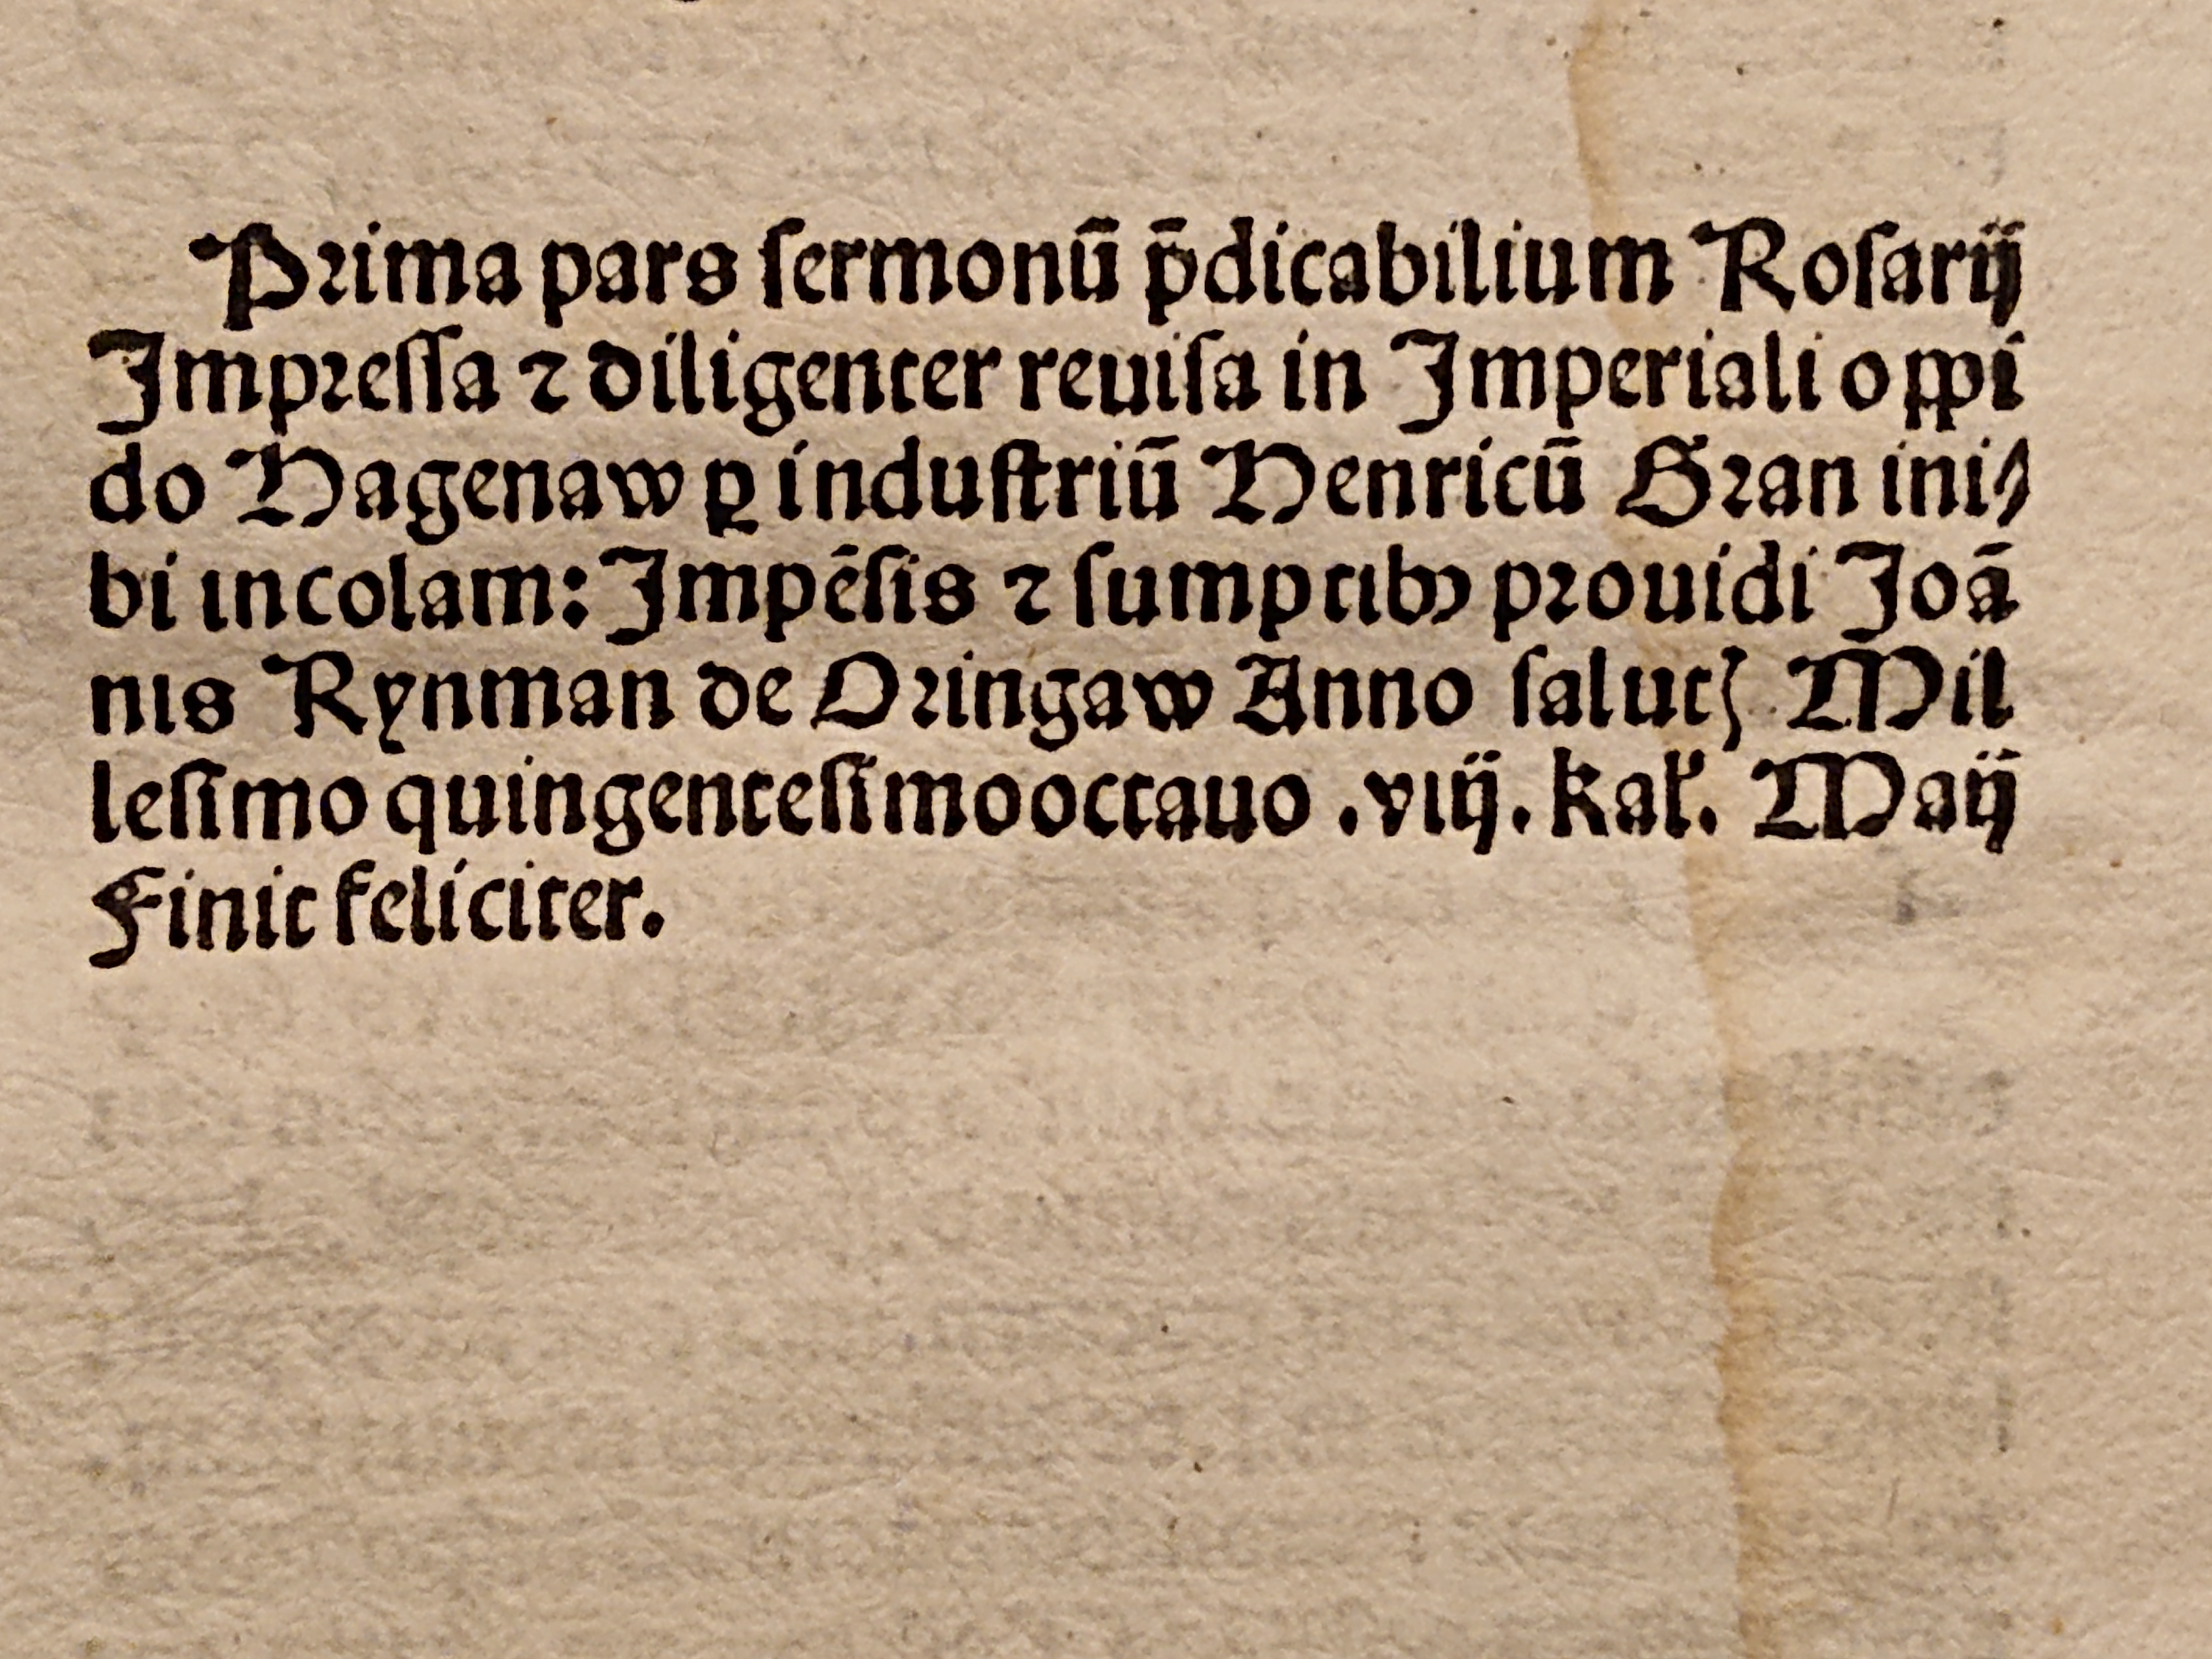 Prima pars ſermonū p̄dicabilium Roſarij
Impreſſa ⁊ diligenter reuiſa in Imperiali oppi
do Hagenaw ꝑ induſtriū Henricū Gran ini⸗
bi incolam: Impēſis ⁊ ſumptibꝰ prouidi Joā
nis Rynman de Oringaw Anno ſalutꝭ Mil
leſimo quingenteſimooctauo .viij. kal̛. Maij
Finit feliciter.